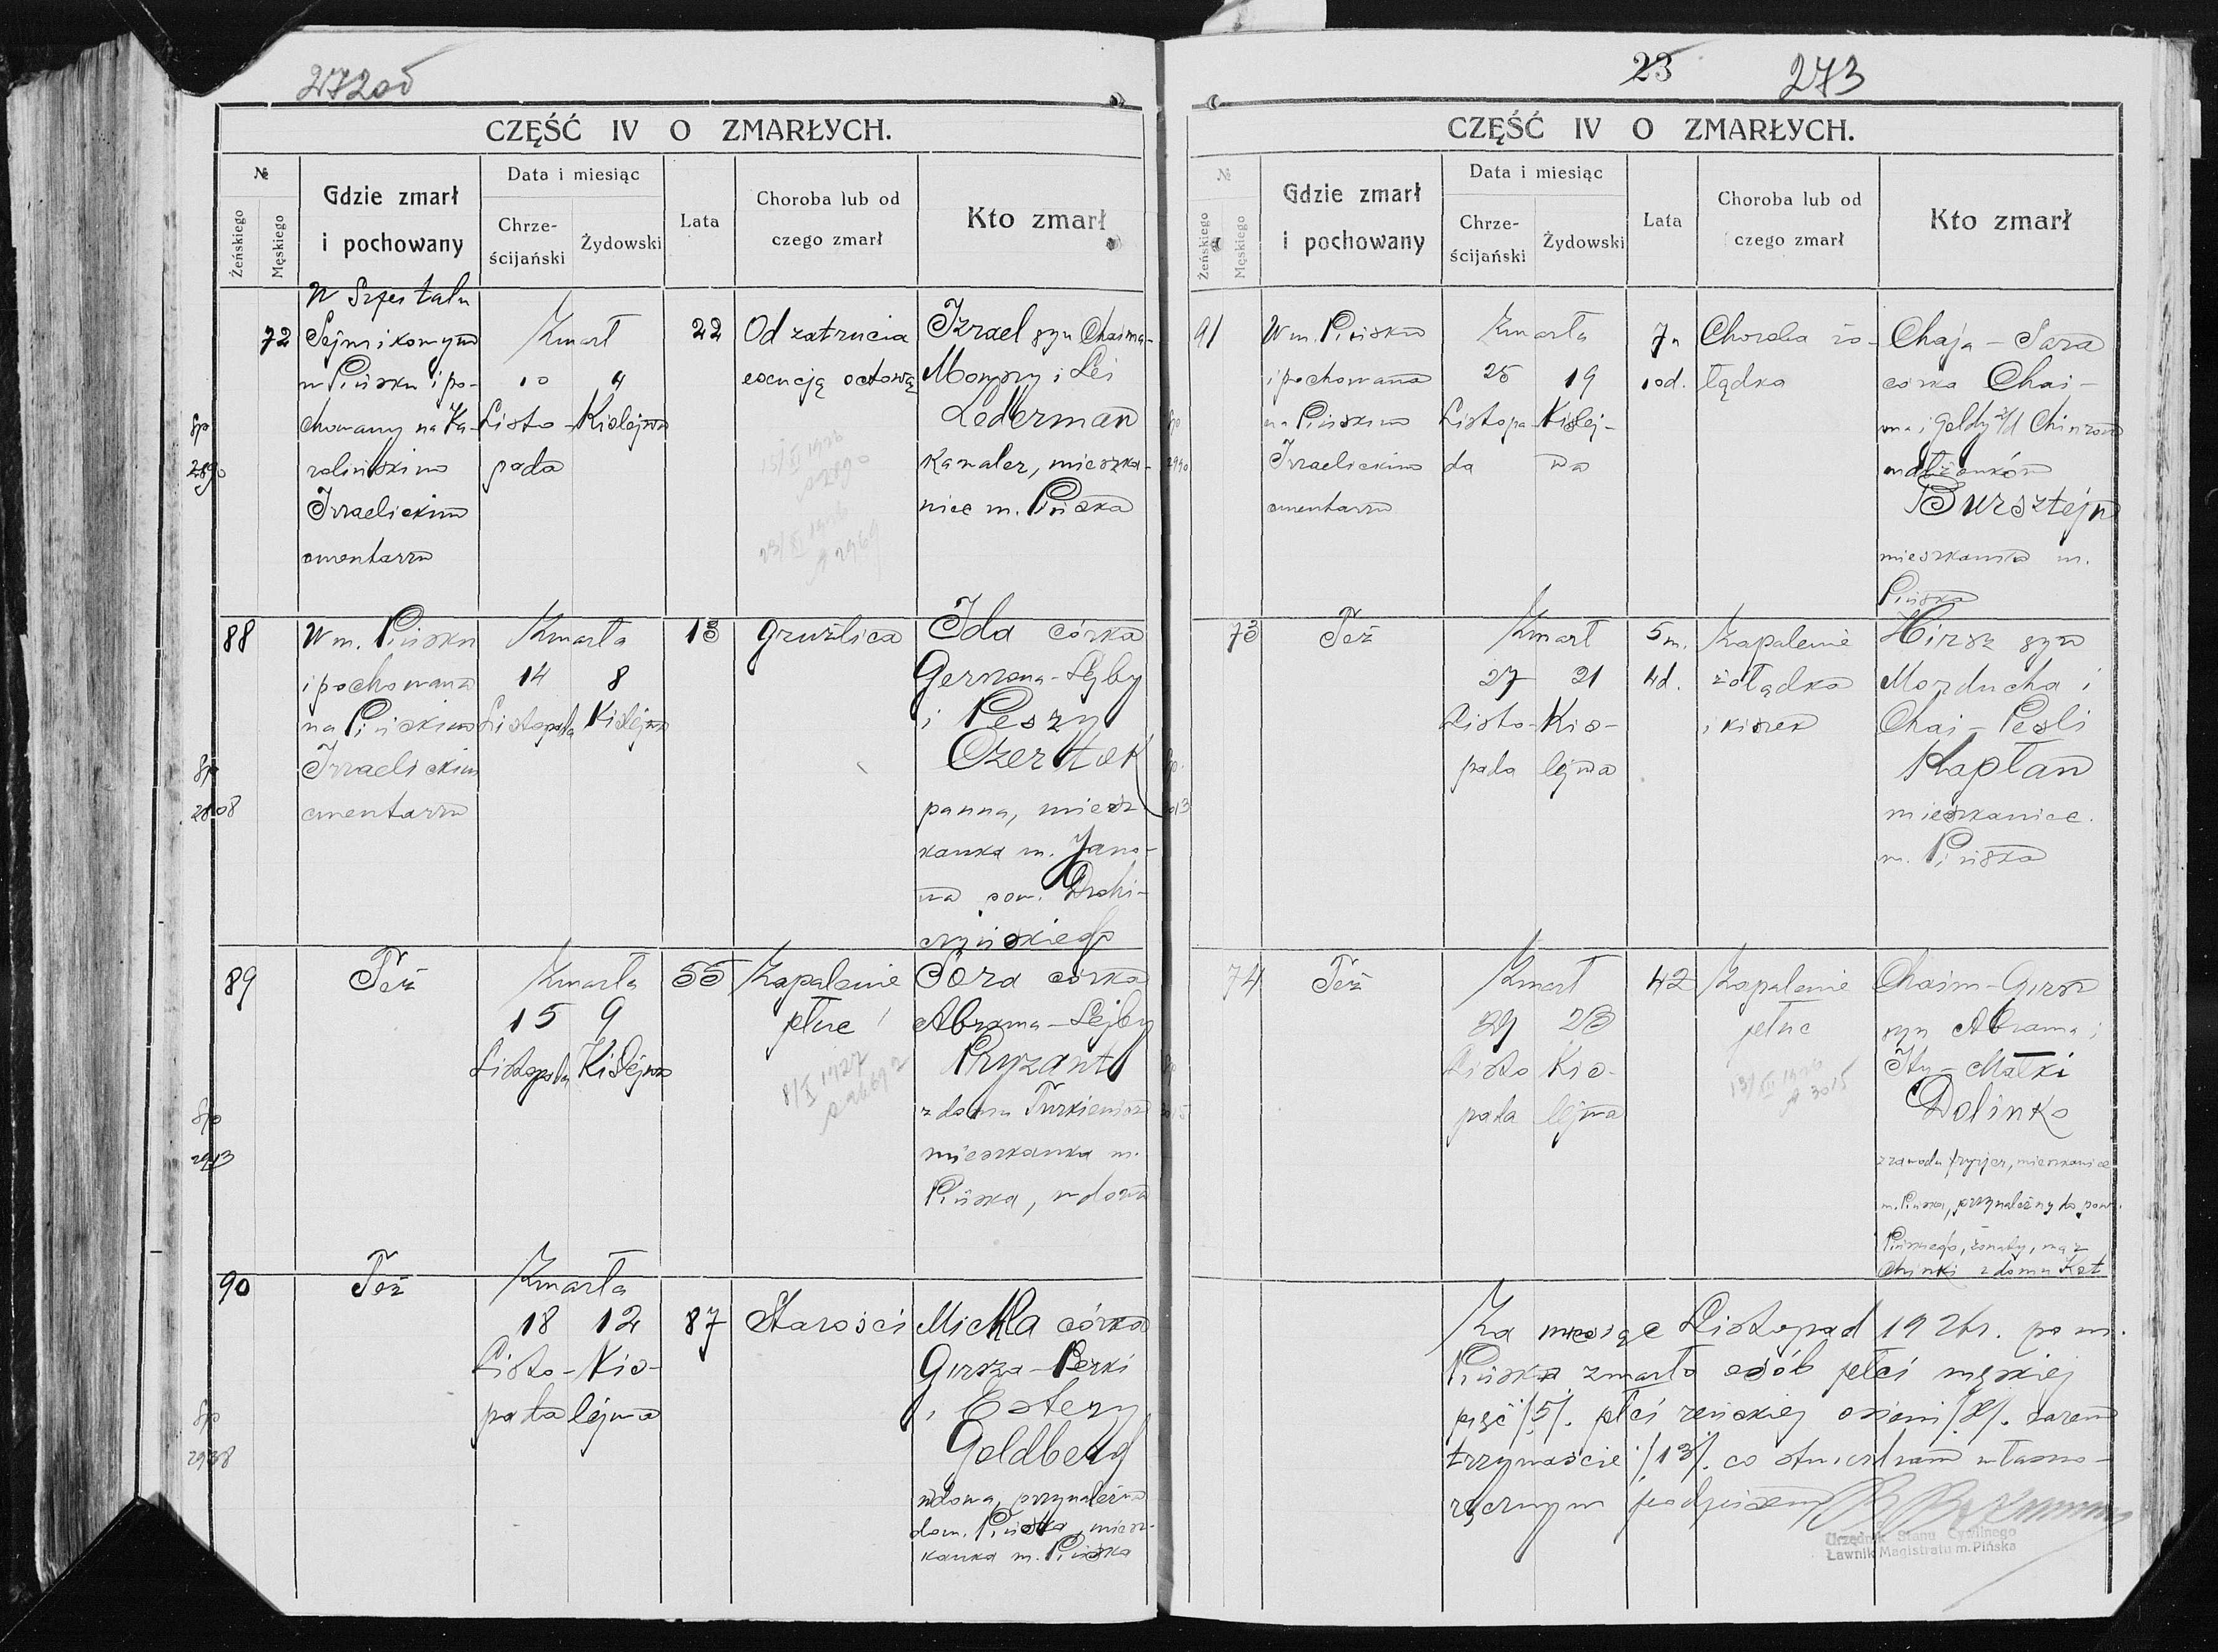 272 od
CZĘŚĆ IV O ZMARŁYCH.
№
Żeńskiego
Męskiego
Gdzie zmarł
i pochowany
Data i miesiąc
Chrze-
ścijański
Żydowski
Lata
Choroba lub od
czego zmarł
Kto zmarł
72
W Szpitalu
Sejmikowym
w Pińsku i po-
chowany na Ka-
rolińskim
Izraelickim
cmentarzu
Zmarł
10 4
Listo- Kislejwa
pada
22
Od zatrucia
esencją octową
15/XI 1926
№ 2890
23/XI 1926
№ 2969
Izrael syn Chaima-
Mowszy i Lei
Lederman
kawaler, mieszka-
niec m. Pińska
2890
88
W m. Pińsku
i pochowana
na Pińskim
Izraelickim
cmentarzu
Zmarła
14 8
Listopada Kislejwa
18
Gruźlica
Ida córka
Gerszona-Lejby
i Peszy
Czertok
panna, miesz-
kanka m. Jano-
wa pow. Drohi-
czyńskiego
2908
89
Też
Zmarła
15 9
Listopada Kislejwa
55
Zapalenie
płuc
Sora córka
Abrama-Lejby
Pryzant
z domu Turkienicz
mieszkanka m.
Pińska, wdowa
2913
90
Też
Zmarła
18 12
Listo- Kis-
pada lejwa
87
Starości
Michla córka
Girsza-Berki
i Estery
Goldberg
wdowa, przynależna
do m. Pińska, miesz-
kanka m. Pińska
2938
23 273
CZĘŚĆ IV O ZMARŁYCH.
№
Żeńskiego
Męskiego
Gdzie zmarł
i pochowany
Data i miesiąc
Chrze-
ścijański
Żydowski
Lata
Choroba lub od
czego zmarł
Kto zmarł
91
W m. Pińsku
i pochowana
na Pińskim
Izraelickim
cmentarzu
Zmarła
25 19
Listopa- Kislej-
da wa
10d.
Choroba żo-
łądka
Chaja-Sara
córka Chai-
ma i Goldy z/d
małżonków
Bursztejn
mieszkanka m.
Pińska
73
Też
Zmarł
27 21
Listo- Kis-
pada lejwa
5m.
4d.
Zapalenie
żołądka
i kiszek
Hirsz syn
Morducha i
Chai-Pesli
Kapłan
mieszkaniec
m. Pińska
3013
74
Też
Zmarł
29 23
Listo Kis-
pada lejwa
42
Zapalenie
płuc
13/XII 1926
№ 3015
Chaim-Girsz
syn Abrama i
Ity-Małki
Dolinko
z zawodu fryzjer, mieszkaniec
m. Pińska, przynależny do pow.
Pińskiego, żonaty, mąż
Chinki z domu Kot
3015
Za miesiąc Listopad 1926 r. po m.
Pińska zmarło osób płci męskiej
pięć /5/. płci żeńskiej osiem /8/. razem
trzynaście /13/. co stwierdzam własno-
ręcznym podpisem
Urzędnik Stanu Cywilnego
Ławnik Magistratu m. Pińska